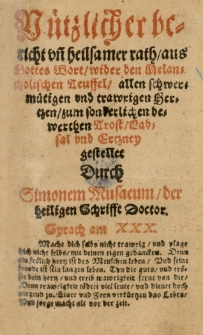 Nützlicher be-
richt vñ heilsamer rath/aus
Gottes Wort/wider den Melan-
cholischen Teuffel/allen schwer-
mütigen vnd trawrigen Her-
tzen/zum sonderlichen be-
werthen Trost/Lab-
sal vnd Ertzney
gestellet
Durch
Simonem Musaeum/der
heiligen Schrifft Doctor.
Syrach am XXX.
Mache dich selbs nicht trawrig/vnd plage
dich nicht selbs/mit deinen eigen gedancken. Denn
ein frölich hertz ist des Menschen leben/Vnd seine
freude ist sein langes leben. Thu dir guts/vnd trö-
ste dein hertz/vnd treib trawrigkeit ferne von dir/
Denn trawrigkeit tödtet viel leute/vnd dienet doch
nirgend zu. Eiuer vnd Zorn verkürtzen das Leben/
Vnd sorge macht alt vor der zeit.